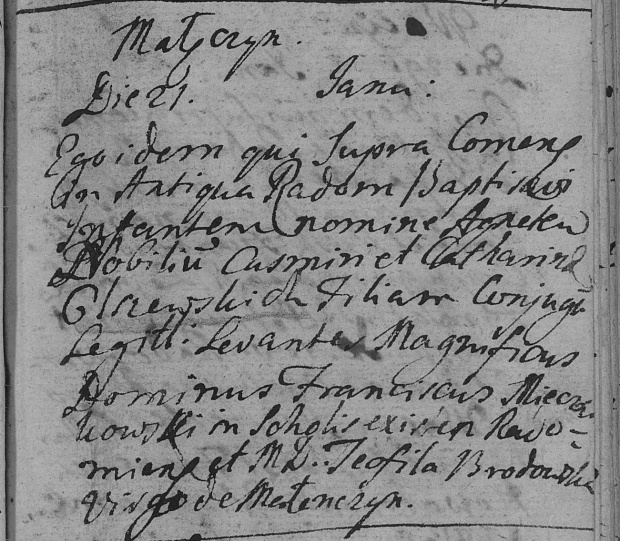 Małęczyn.
Die 21. Janu:
Ego idem qui Supra Comens
In Antiqua Radom Baptisavi
Infantem nomine Agnetem
Nobiliū Casmiri et Catharina
Olszewskich Filiam Conjugū
Legitt: Levantes Magnificus
Dominus Franciscus Mięcza
kowski in Scholis existen Rado-
miens et MD: Teofila Brodowska
Virgo de Małenczyn.